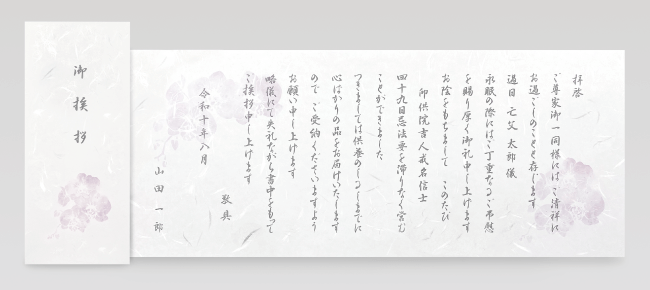 拝啓
ご尊家御一同様にはご清祥に
お過ごしのことと存じます
過日 亡父 太郎 儀
永眠の際にはご丁重なるご弔慰
を賜り厚く御礼申し上げます
お陰をもちまして このたび
四十九日忌法要を滞りなく営む
ことができました
つきましては供養のしるしまでに
心ばかりの品をお届けいたします
ので ご受納くださいますよう
お願い申し上げます
略儀にて失礼ながら書中をもって
ご挨拶申し上げます
敬具
令和十年八月
山田 一郎
御挨拶